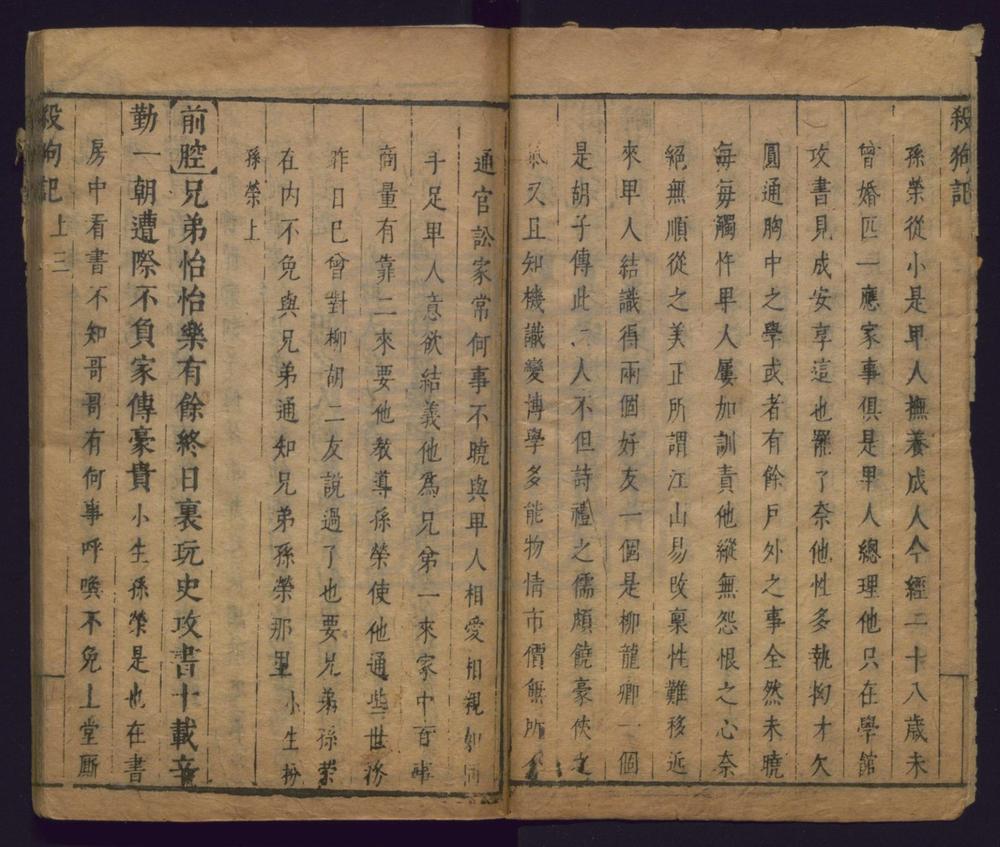 殺狗記
孫榮從小是卑人撫養成人今經二十八歲未
曾婚匹一應家事俱是卑人總理他只在學館
攻書見成安享這也罷了奈他性多執拗才欠
圓通胸中之學或者有餘戶外之事全然未曉
每每觸忤卑人屢加訓責他縱無怨恨之心奈
絕無順從之美正所謂江山易改稟性難移近
來卑人結識得兩個好友一個是柳龍卿一個
是胡子傳此二人不但詩禮之儒頗饒豪俠之
氣又且知機識變博學多能物情市價無所
通官訟家常何事不曉與卑人相愛相親如同
手足卑人意欲結義他爲兄弟一來家中百事
商量有靠二來要他教導孫榮使他通些世務
昨日已曾對柳胡二友說過了也要兄弟孫榮
在內不免與兄弟通知兄弟孫榮那里 小生扮
孫榮上
【前腔】兄弟怡怡樂有餘終日裏玩史攻書十載辛
勤一朝遭際不負家傳豪貴 小生孫榮是也在書
房中看書不知哥哥有何事呼喚不免上堂廝
殺狗記 上 三